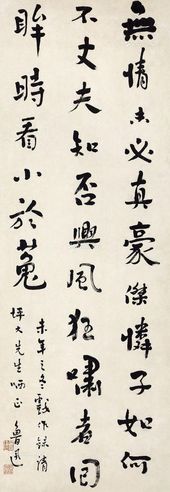 無情未必真豪傑憐子如何
不丈夫知否興風狂嘯者回
眸時看小於菟
未年之冬戲作錄請
坪井先生哂正
魯迅